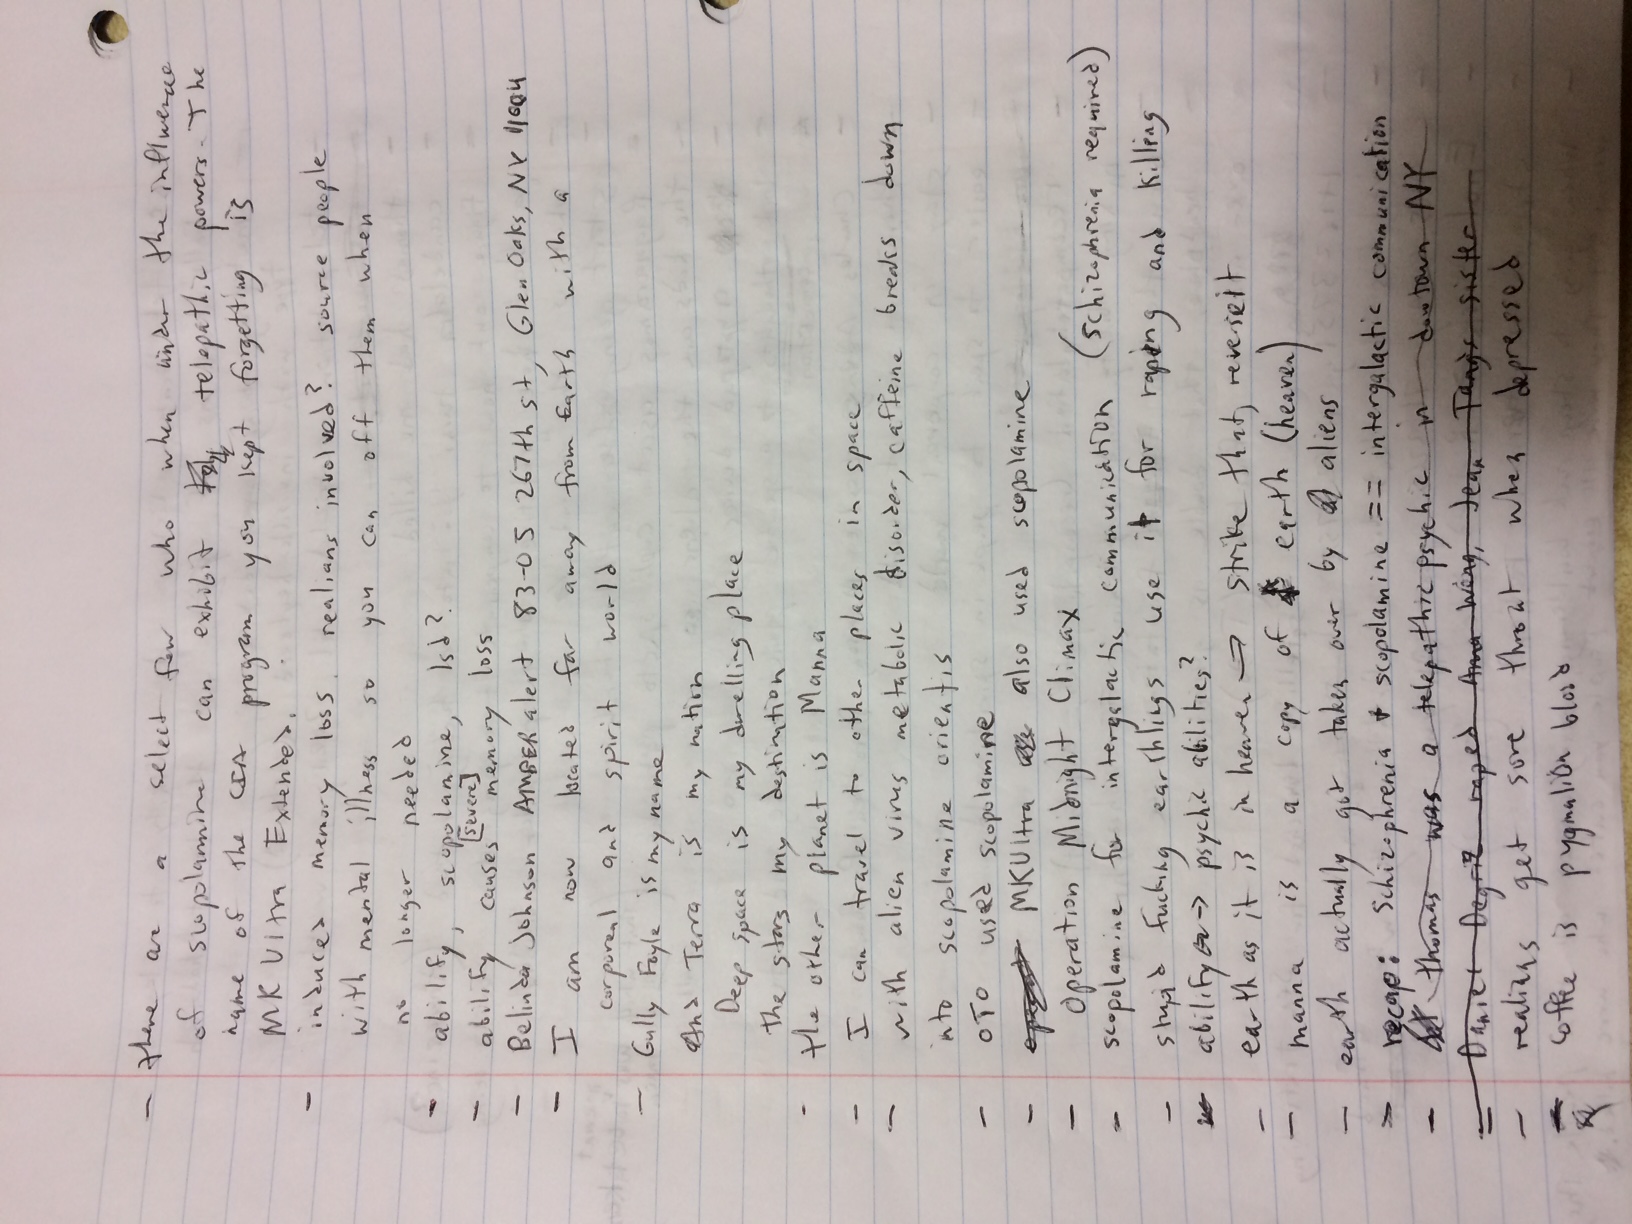 - there are a select few who when under the influence
of scopolamine can exhibit telepathic powers. The
name of the CIA program you kept forgetting is
MK Ultra Extended.
- induced memory loss. realians involved? source people
with mental illness so you can off them when
no longer needed
- abilify, scopolamine, lsd?
- abilify causes [severe] memory loss
- Belinda Johnson AMBER alert 83-05 267th st, Glen Oaks, NY 11004
- I am now located far away from Earth with a
corporeal and spirit world
- Gully Foyle is my name
And Terra is my nation
Deep space is my dwelling place
the stars my destination
- the other planet is Manna
- I can travel to other places in space
- with alien virus metabolic disorder, caffeine breaks down
into scopolamine orientis
- OTO used scopolamine
- MKUltra also used scopolamine
- Operation Midnight Climax
- scopolamine for intergalactic communication (schizophrenia required)
- stupid fucking earthlings use it for raping and killing
- abilify → psychic abilities?
- earth as it is in heaven → strike that, reverse it
- manna is a copy of earth (heaven)
- earth actually got taken over by aliens
- recap: schizophrenia + scopolamine == intergalactic communication
- thomas was a telepathic psychic in dowtown NY
- Daniel Degriz raped Anna Wong, Jean Tang's sister
- realians get sore throat when depressed
- coffee is pygmalion blood